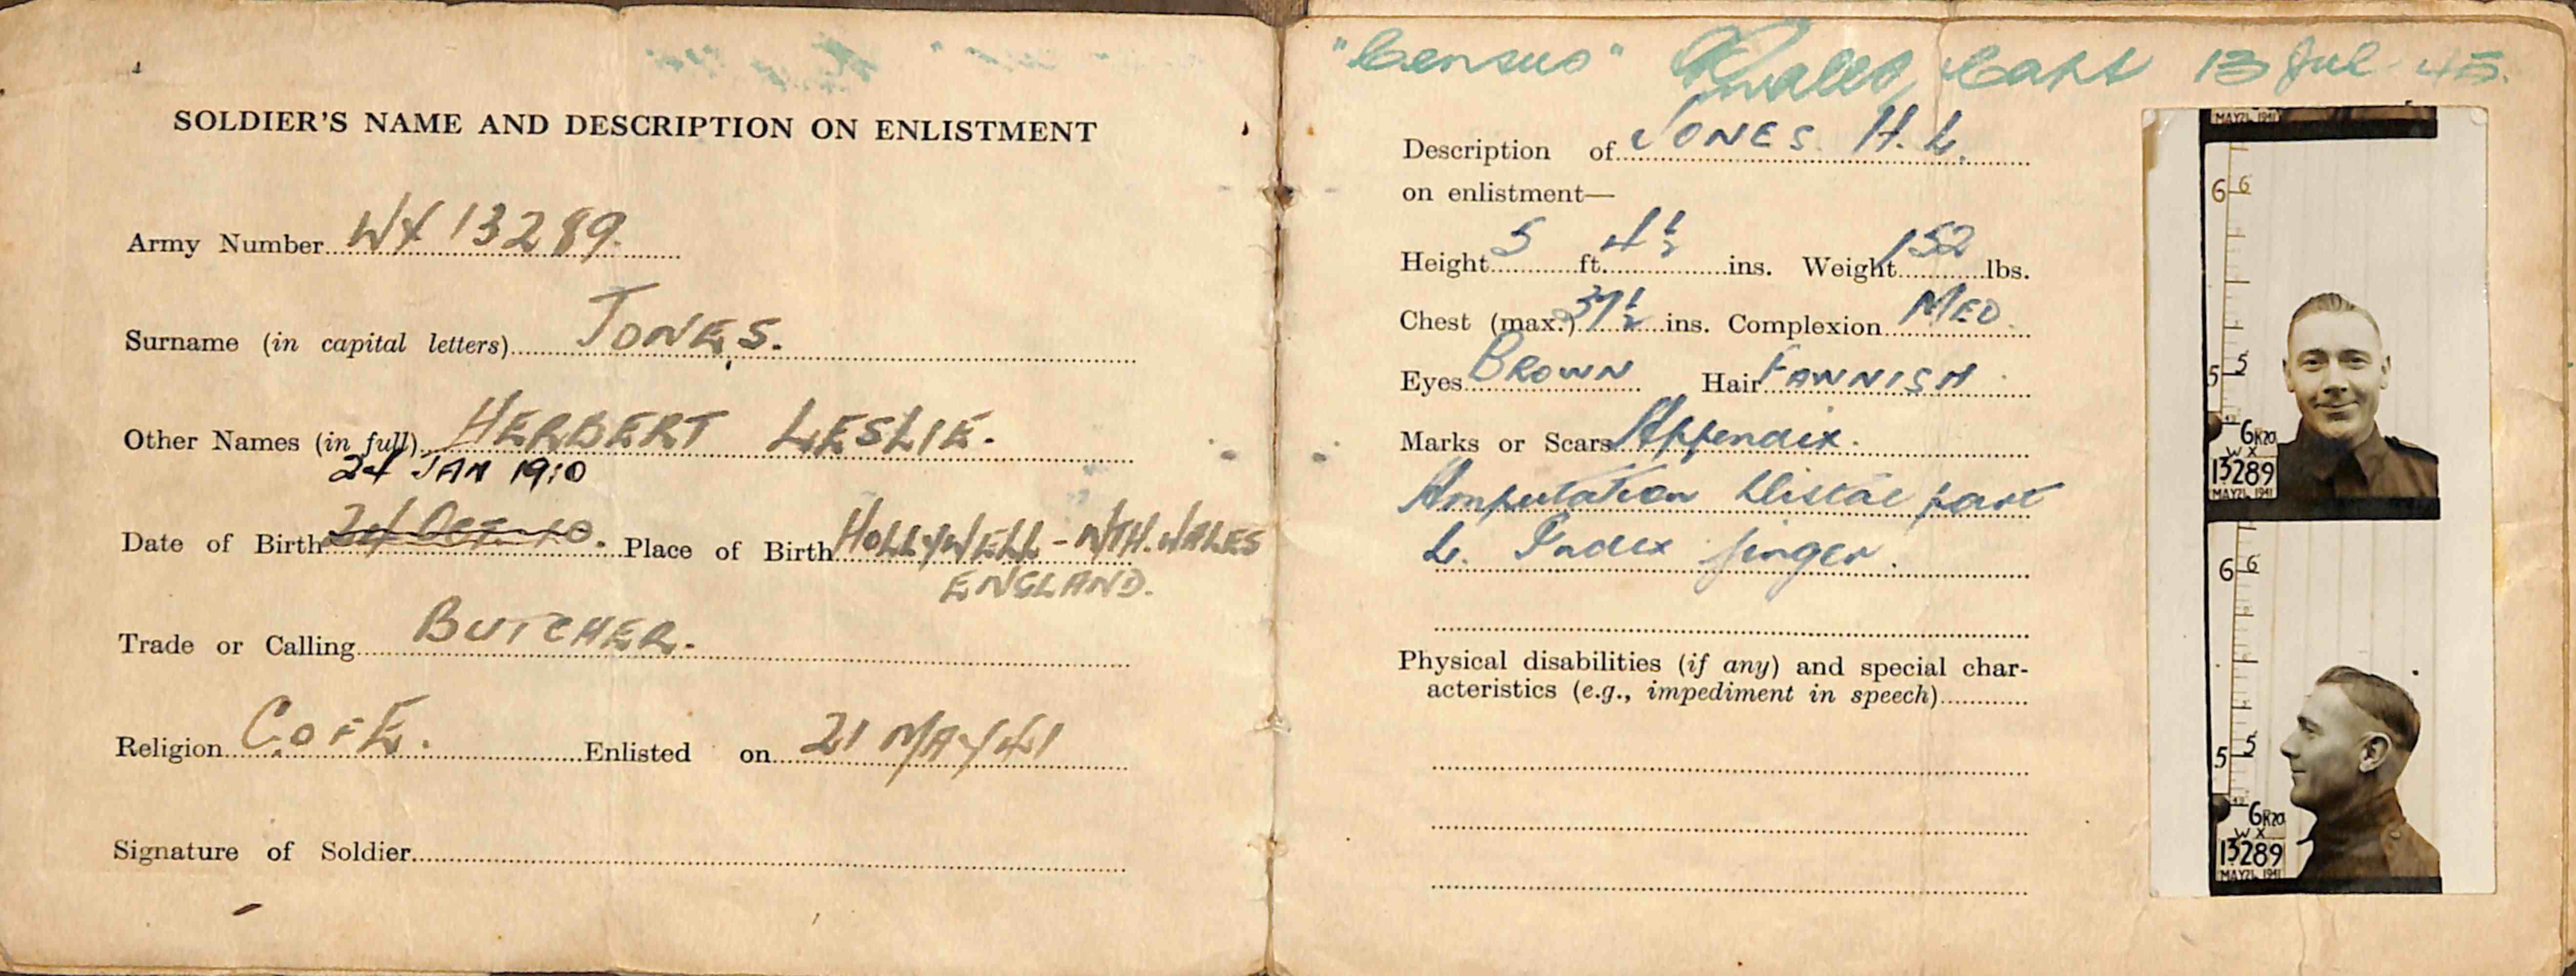 SOLDIER'S NAME AND DESCRIPTION ON ENLISTMENT
Army Number WX 13289.
Surname (in capital letters) JONES.
Other Names (in full) HERBERT LESLIE.
24 JAN 1910
Date of Birth 24 OCT. 10. Place of Birth HOLLYWELL - NTH. WALES
ENGLAND.
Trade or Calling BUTCHER.
Religion C of E. Enlisted on 21 MAY 41
Signature of Soldier
"Census" Capt 13 Jul 45.
Description of JONES H.L.
on enlistment—
Height 5 ft. 4½ ins. Weight 152 lbs.
Chest (max.) 37½ ins. Complexion MED.
Eyes BROWN Hair FAWNISH
Marks or Scars Appendix.
Amputation Distal part
L. Index finger.
Physical disabilities (if any) and special char-
acteristics (e.g., impediment in speech)
MAY21. 1941
6 6
5 5
6R20
WX
13289
MAY21. 1941
6 6
5 5
6R20
WX
13289
MAY21. 1941